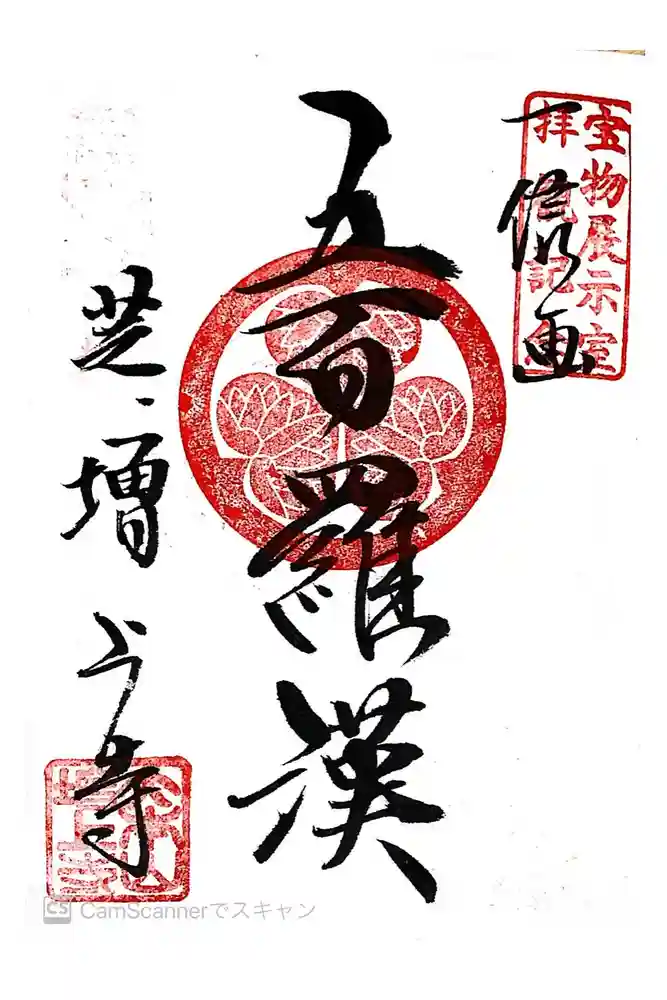 宝物展示室
拝観記念
一信画
五百羅漢
芝、増上寺
CS CamScannerでスキャン